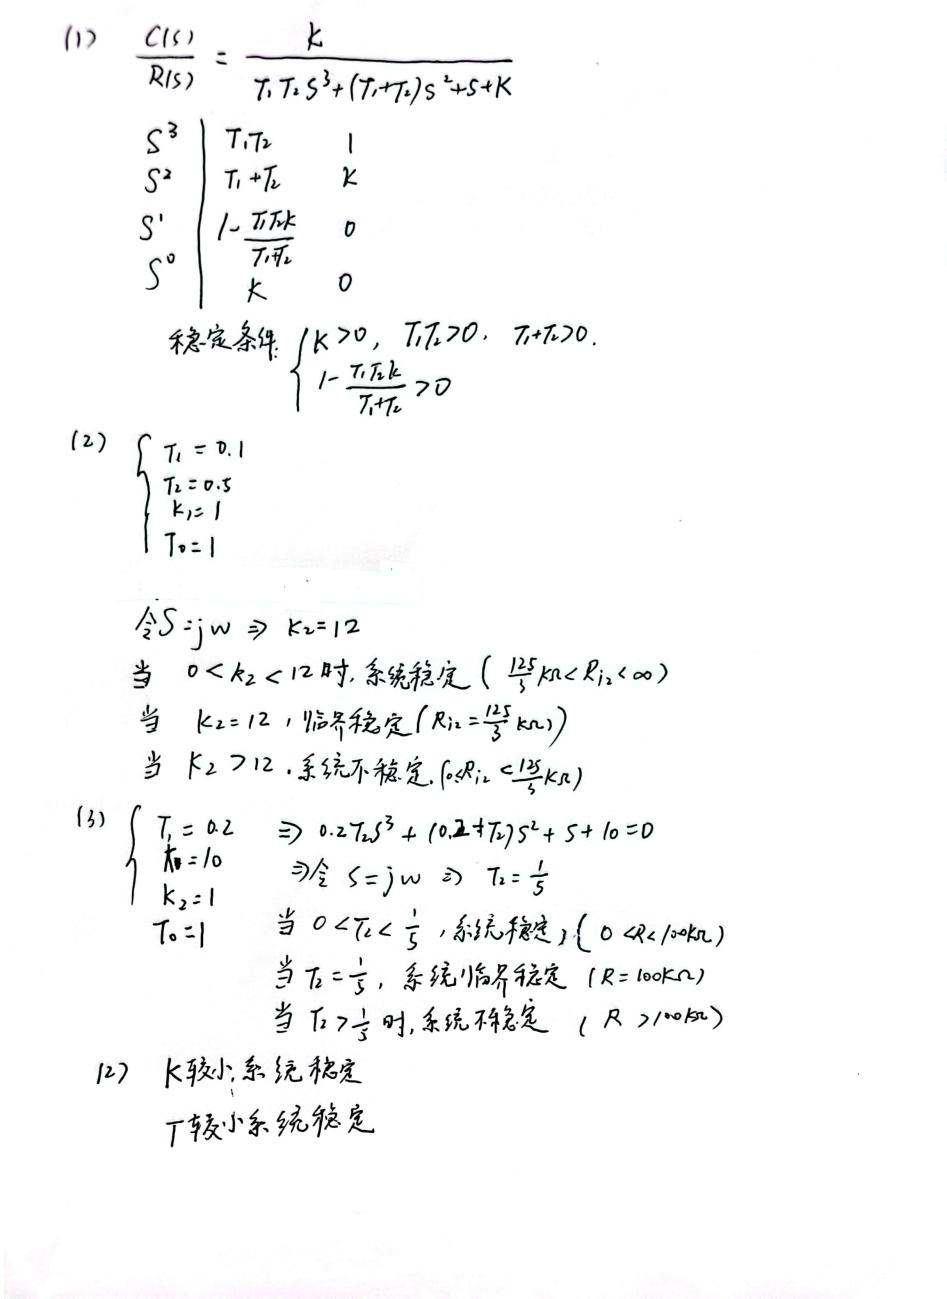 (1) C(s)/R(s) = K / (T₁T₂S³+(T₁+T₂)S²+S+K)
S³ | T₁T₂ 1
S² | T₁+T₂ K
S¹ | 1-T₁T₂K/(T₁+T₂) 0
S⁰ | K 0
稳定条件: { K>0, T₁T₂>0, T₁+T₂>0.
1-T₁T₂K/(T₁+T₂) >0
(2) { T₁=0.1
T₂=0.5
K₁=1
T₀=1
令S=jw ⇒ K₂=12
当 0<K₂<12时,系统稳定 (125/3 KΩ<Rⱼ₂<∞)
当 K₂=12,临界稳定 (Rⱼ₂=125/3 KΩ)
当 K₂>12,系统不稳定.(0≤Rⱼ₂<125/3 KΩ)
(3) { T₁=0.2 ⇒ 0.2T₂S³+(0.2+T₂)S²+S+10=0
=10 ⇒令 S=jw ⇒ T₂=1/5
K₂=1
T₀=1 当 0<T₂<1/5,系统稳定,(0<R<100KΩ)
当 T₂=1/5,系统临界稳定 (R=100KΩ)
当 T₂>1/5时,系统不稳定 (R>100KΩ)
(2) K较小,系统稳定
T较小系统稳定